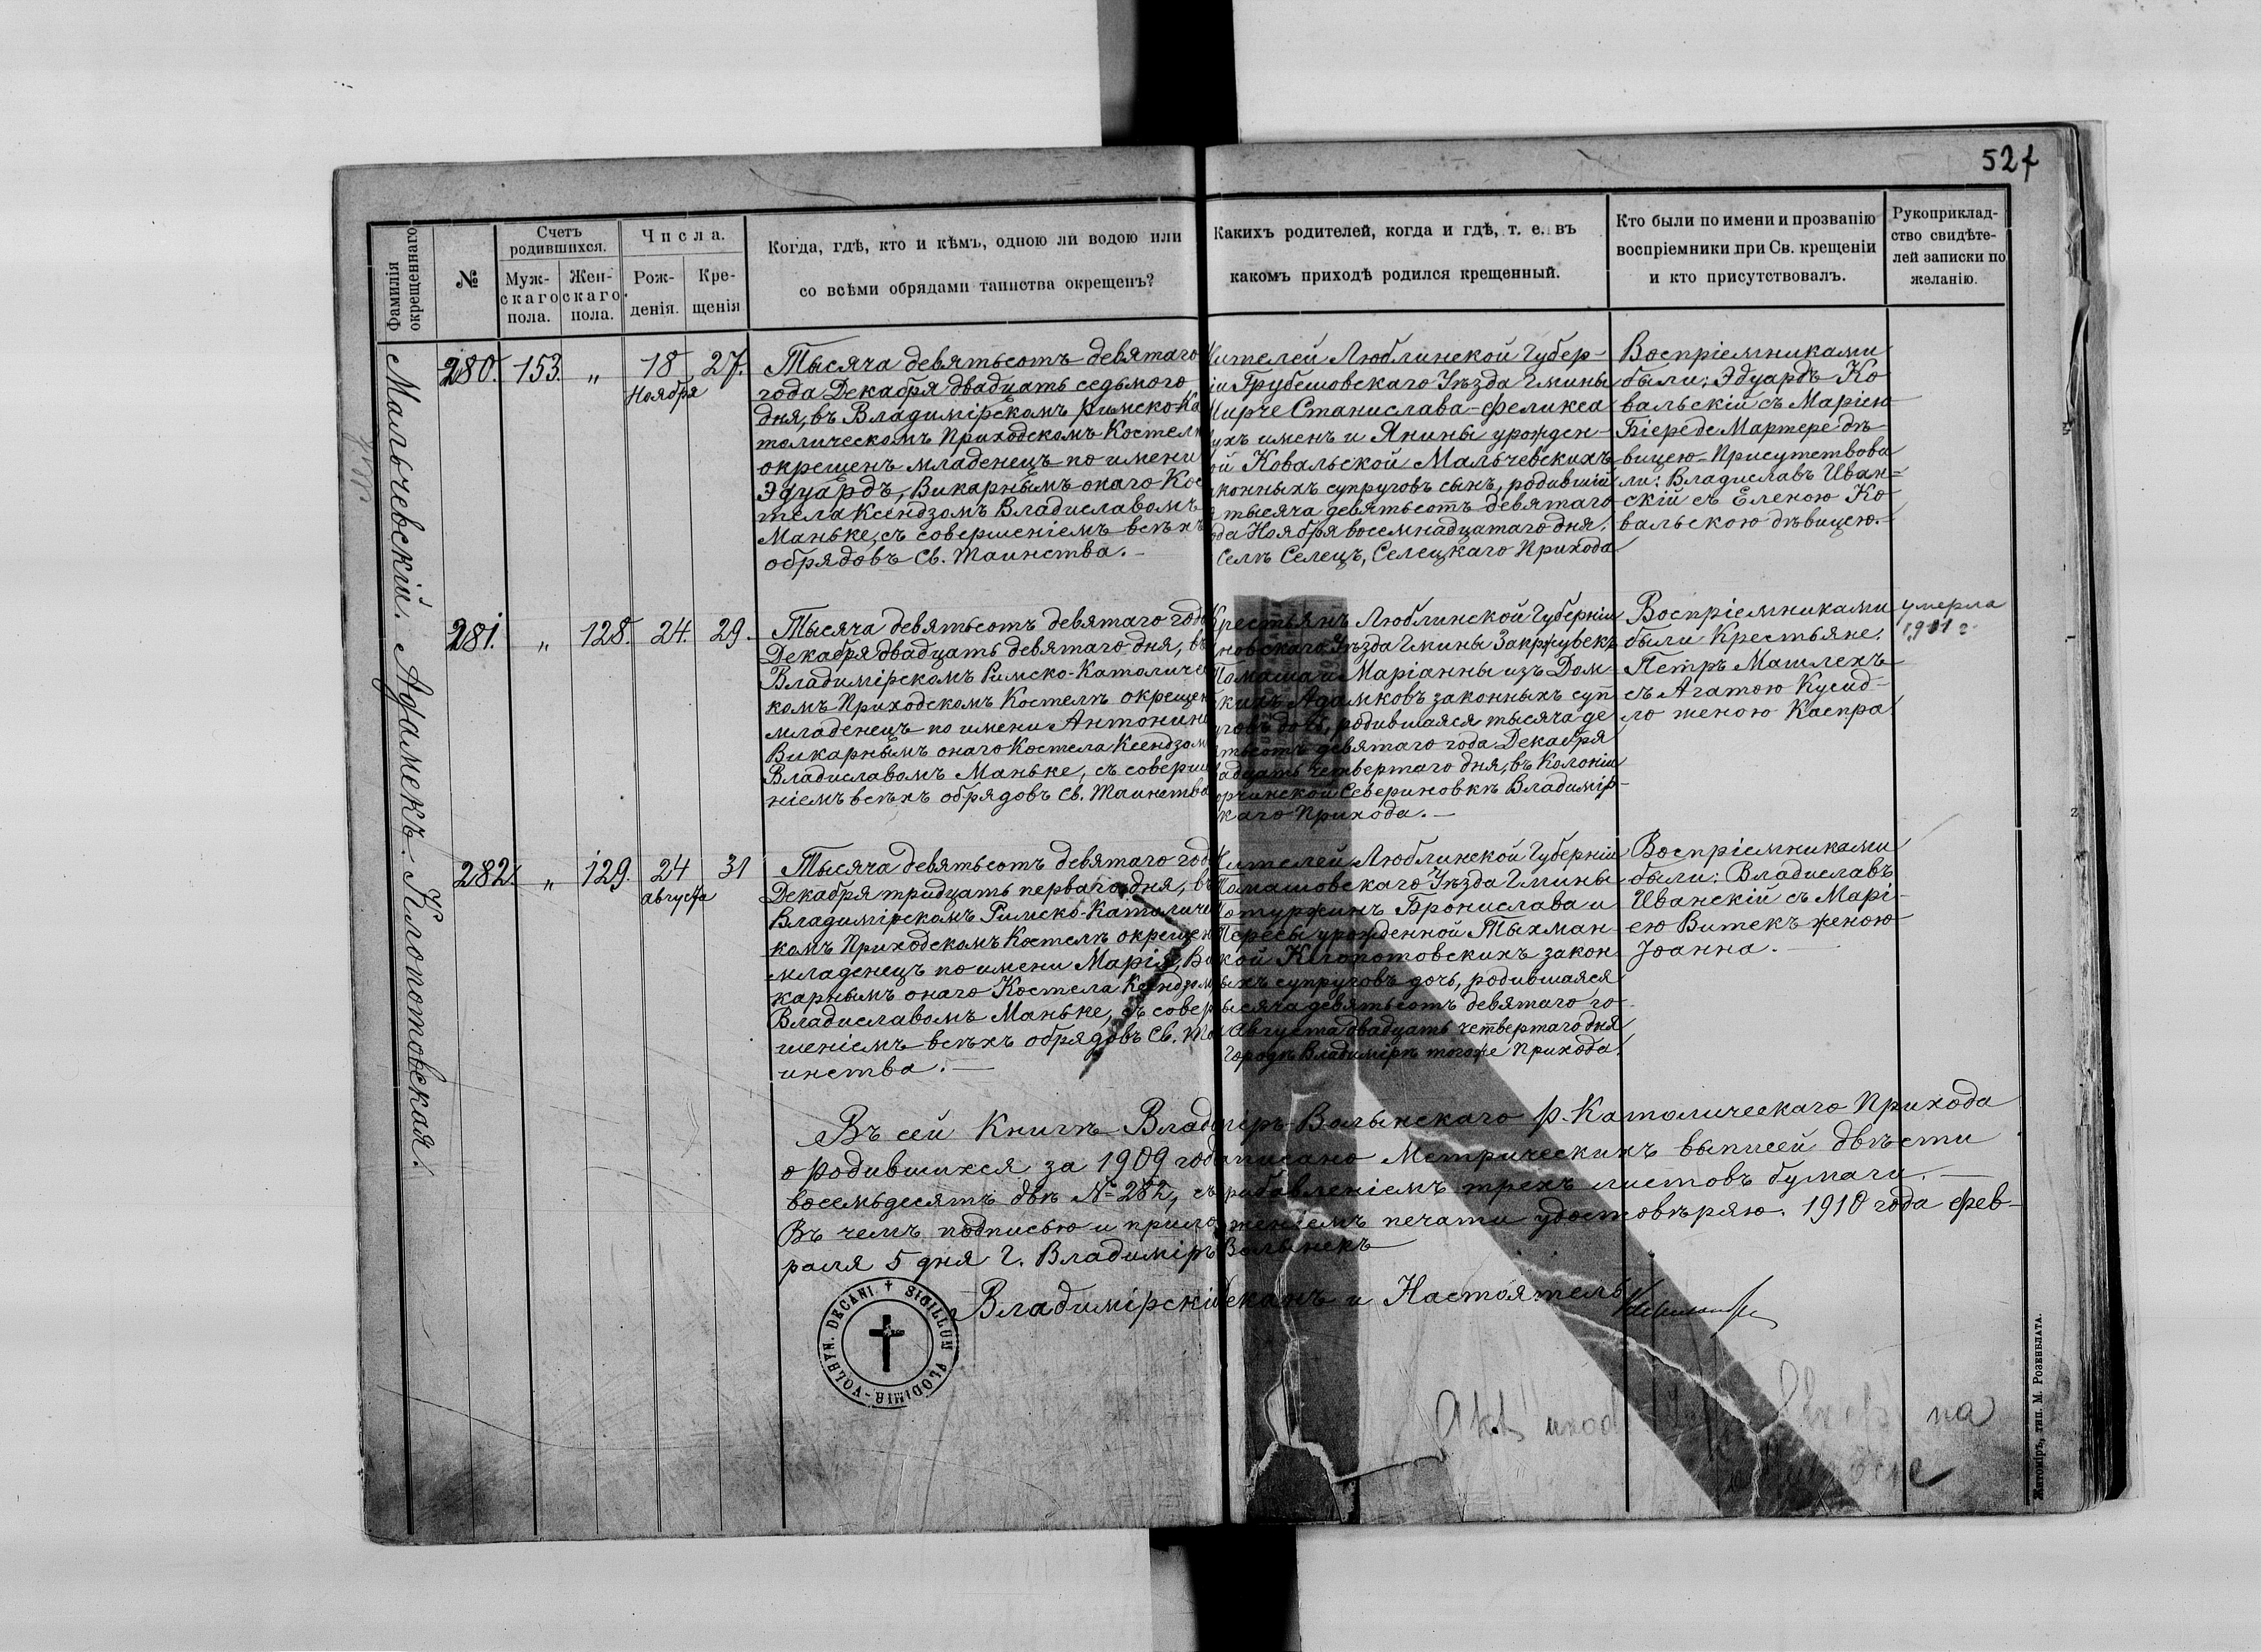 527
Фамилія окрещеннаго
№
Счетъ родившихся.
Муж-
скаго
пола.
Жен-
скаго
пола.
Числа.
Рож-
денія.
Кре-
щенія
Когда, гдѣ, кто и кѣмъ, одною ли водою или
со всѣми обрядами таинства окрещенъ?
Какихъ родителей, когда и гдѣ, т. е. въ
какомъ приходѣ родился крещенный.
Кто были по имени и прозванію
воспріемники при Св. крещеніи
и кто присутствовалъ.
Рукоприклад-
ство свидѣте-
лей записки по
желанію.
Мальчевскій.
280. 153. „ 18 27.
Ноября
Тысяча девятьсотъ девятаго
года Декабря двадцать седьмого
дня, въ Владимірскомъ Римско-Ка
толическомъ Приходскомъ Костелѣ
окрещенъ младенецъ по имени
Эдуардъ, Викарнымъ онаго Кос
тела Ксендзомъ Владиславомъ
Маньке, съ совершеніемъ всѣхъ
обрядовъ Св. Таинства. –
ителей Люблинской Губер-
іи Грубешовскаго Уѣзда Гмины
Мирче Станислава-Феликса
ухъ именъ и Янины урожден-
ой Ковальской Мальчевскихъ
конныхъ супруговъ сынъ, родившій
тысяча девятьсотъ девятаго
ода Ноября восемнадцатаго дня,
Селѣ Селецъ, Селецкаго Прихода
Воспріемниками
были: Эдуардъ Ко
вальскій съ Маріею
Біере де Мартере дѣ
вицею. Присутствова
ли: Владиславъ Иван=
скій съ Еленою Ко
вальскою дѣвицею. –
Адамекъ.
281. „ 128. 24. 29.
Тысяча девятьсотъ девятаго года
Декабря двадцать девятаго дня, въ
Владимірскомъ Римско-Католичес
комъ Приходскомъ Костелѣ окрещен
младенецъ по имени Антонина
Викарнымъ онаго Костела Ксендзом
Владиславомъ Маньке, съ соверше
ніемъ всѣхъ обрядовъ Св. Таинства
Крестьянъ Люблинской Губерніи
новскаго Уѣзда Гмины Закржувекъ
Томаша и Маріанны изъ Дом
скихъ Адамковъ законныхъ суп
уговъ дочь, родившаяся тысяча де
ятьсотъ девятаго года Декабря
адцать четвертаго дня, въ Колоніи
орчинской Севериновкѣ Владимір-
каго Прихода. –
Воспріемниками
были Крестьяне.
Петръ Машлехъ
съ Агатою Кусид-
ло женою Каспра
умерла
1911 г.
Клопотовская.
282. „ 129. 24 31
августа
Тысяча девятьсотъ девятаго год
Декабря тридцать перваго дня, въ
Владимірскомъ Римско-Католиче
комъ Приходскомъ Костелѣ окрещен
младенецъ по имени Марія, Ви
карнымъ онаго Костела Ксендзом
Владиславомъ Маньке, съ совер
шеніемъ всѣхъ обрядовъ Св. Та
инства. –
ителей Люблинской Губерніи
Томашовскаго Уѣзда Гмины
Потуржинъ Бронислава и
Тересы урожденной Тыхман-
кой Клопотовскихъ закон
ыхъ супруговъ дочь, родившаяся
ысяча девятьсотъ девятаго го-
Августа двадцать четвертаго дня
Городѣ Владимірѣ тогоже Прихода.
Воспріемниками
были: Владиславъ
Иванскій съ Марі-
ею Витекъ женою
Іоанна. –
Въ сей Книгѣ Владиміръ-Волынскаго Р. Католическаго Прихода
о родившихся за 1909 годъ писано Метрическихъ выписей двѣсти
восемьдесятъ двѣ №=282, съ рибавленіемъ трехъ листовъ бумаги. –
Въ чемъ подписью и приложеніемъ печати удостовѣряю. 1910 года Фев-
раля 5 дня Г. Владиміръ Волынскъ
Владимірскій Деканъ и Настоятель
SIGILLUM VLODIMIR-VOLHYN. DECANI
Akt
na
Житоміръ, тип. М. Розенблата.